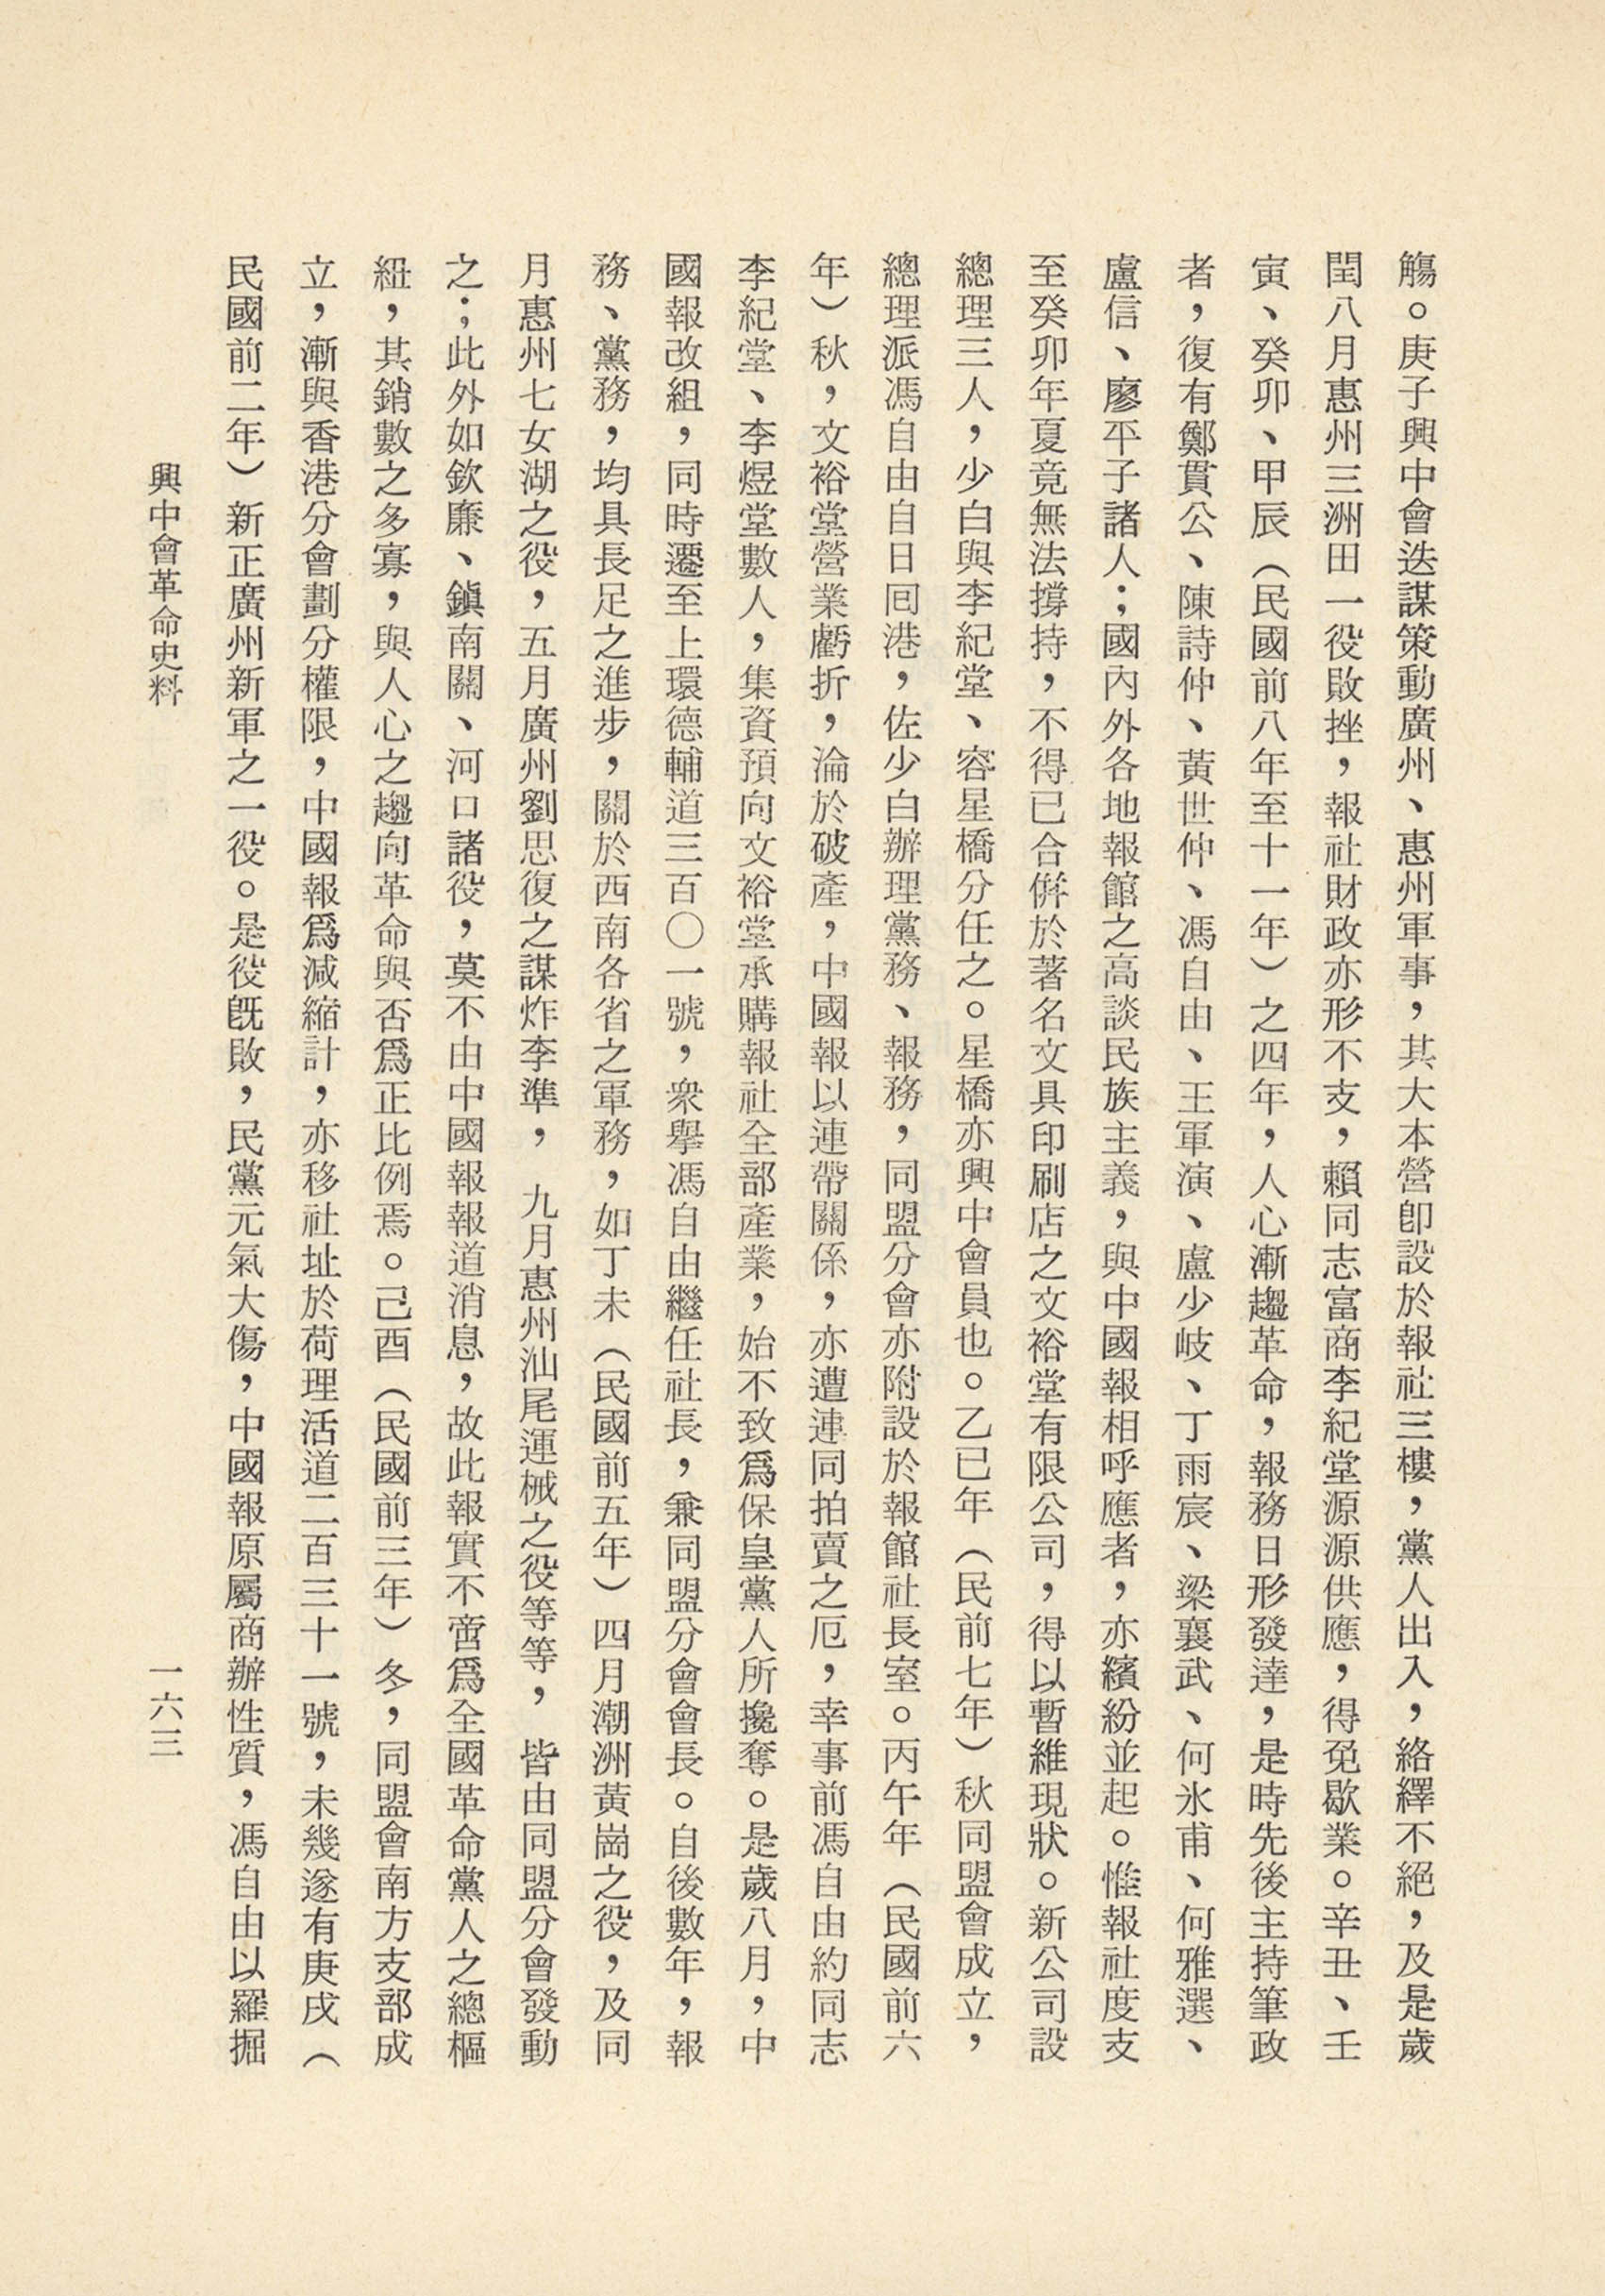 觴。庚子興中會迭謀策動廣州、惠州軍事，其大本營卽設於報社三樓，黨人出入，絡繹不絕，及是歲
閏八月惠州三洲田一役敗挫，報社財政亦形不支，賴同志富商李紀堂源源供應，得免歇業。辛丑、壬
寅、癸卯、甲辰（民國前八年至十一年）之四年，人心漸趨革命，報務日形發達，是時先後主持筆政
者，復有鄭貫公、陳詩仲、黃世仲、馮自由、王軍演、盧少岐、丁雨宸、梁襄武、何氷甫、何雅選、
盧信、廖平子諸人；國內外各地報館之高談民族主義，與中國報相呼應者，亦繽紛並起。惟報社度支
至癸卯年夏竟無法撐持，不得已合併於著名文具印刷店之文裕堂有限公司，得以暫維現狀。新公司設
總理三人，少白與李紀堂、容星橋分任之。星橋亦興中會員也。乙巳年（民前七年）秋同盟會成立，
總理派馮自由自日囘港，佐少白辦理黨務、報務，同盟分會亦附設於報館社長室。丙午年（民國前六
年）秋，文裕堂營業虧折，淪於破產，中國報以連帶關係，亦遭連同拍賣之厄，幸事前馮自由約同志
李紀堂、李煜堂數人，集資預向文裕堂承購報社全部產業，始不致爲保皇黨人所攙奪。是歲八月，中
國報改組，同時遷至上環德輔道三百〇一號，衆舉馮自由繼任社長，兼同盟分會會長。自後數年，報
務、黨務，均具長足之進步，關於西南各省之軍務，如丁未（民國前五年）四月潮洲黃崗之役，及同
月惠州七女湖之役，五月廣州劉思復之謀炸李準，九月惠州汕尾運械之役等等，皆由同盟分會發動
之；此外如欽廉、鎭南關、河口諸役，莫不由中國報報道消息，故此報實不啻爲全國革命黨人之總樞
紐，其銷數之多寡，與人心之趨向革命與否爲正比例焉。己酉（民國前三年）冬，同盟會南方支部成
立，漸與香港分會劃分權限，中國報爲減縮計，亦移社址於荷理活道二百三十一號，未幾遂有庚戌（
民國前二年）新正廣州新軍之一役。是役旣敗，民黨元氣大傷，中國報原屬商辦性質，馮自由以羅掘
興中會革命史料
一六三